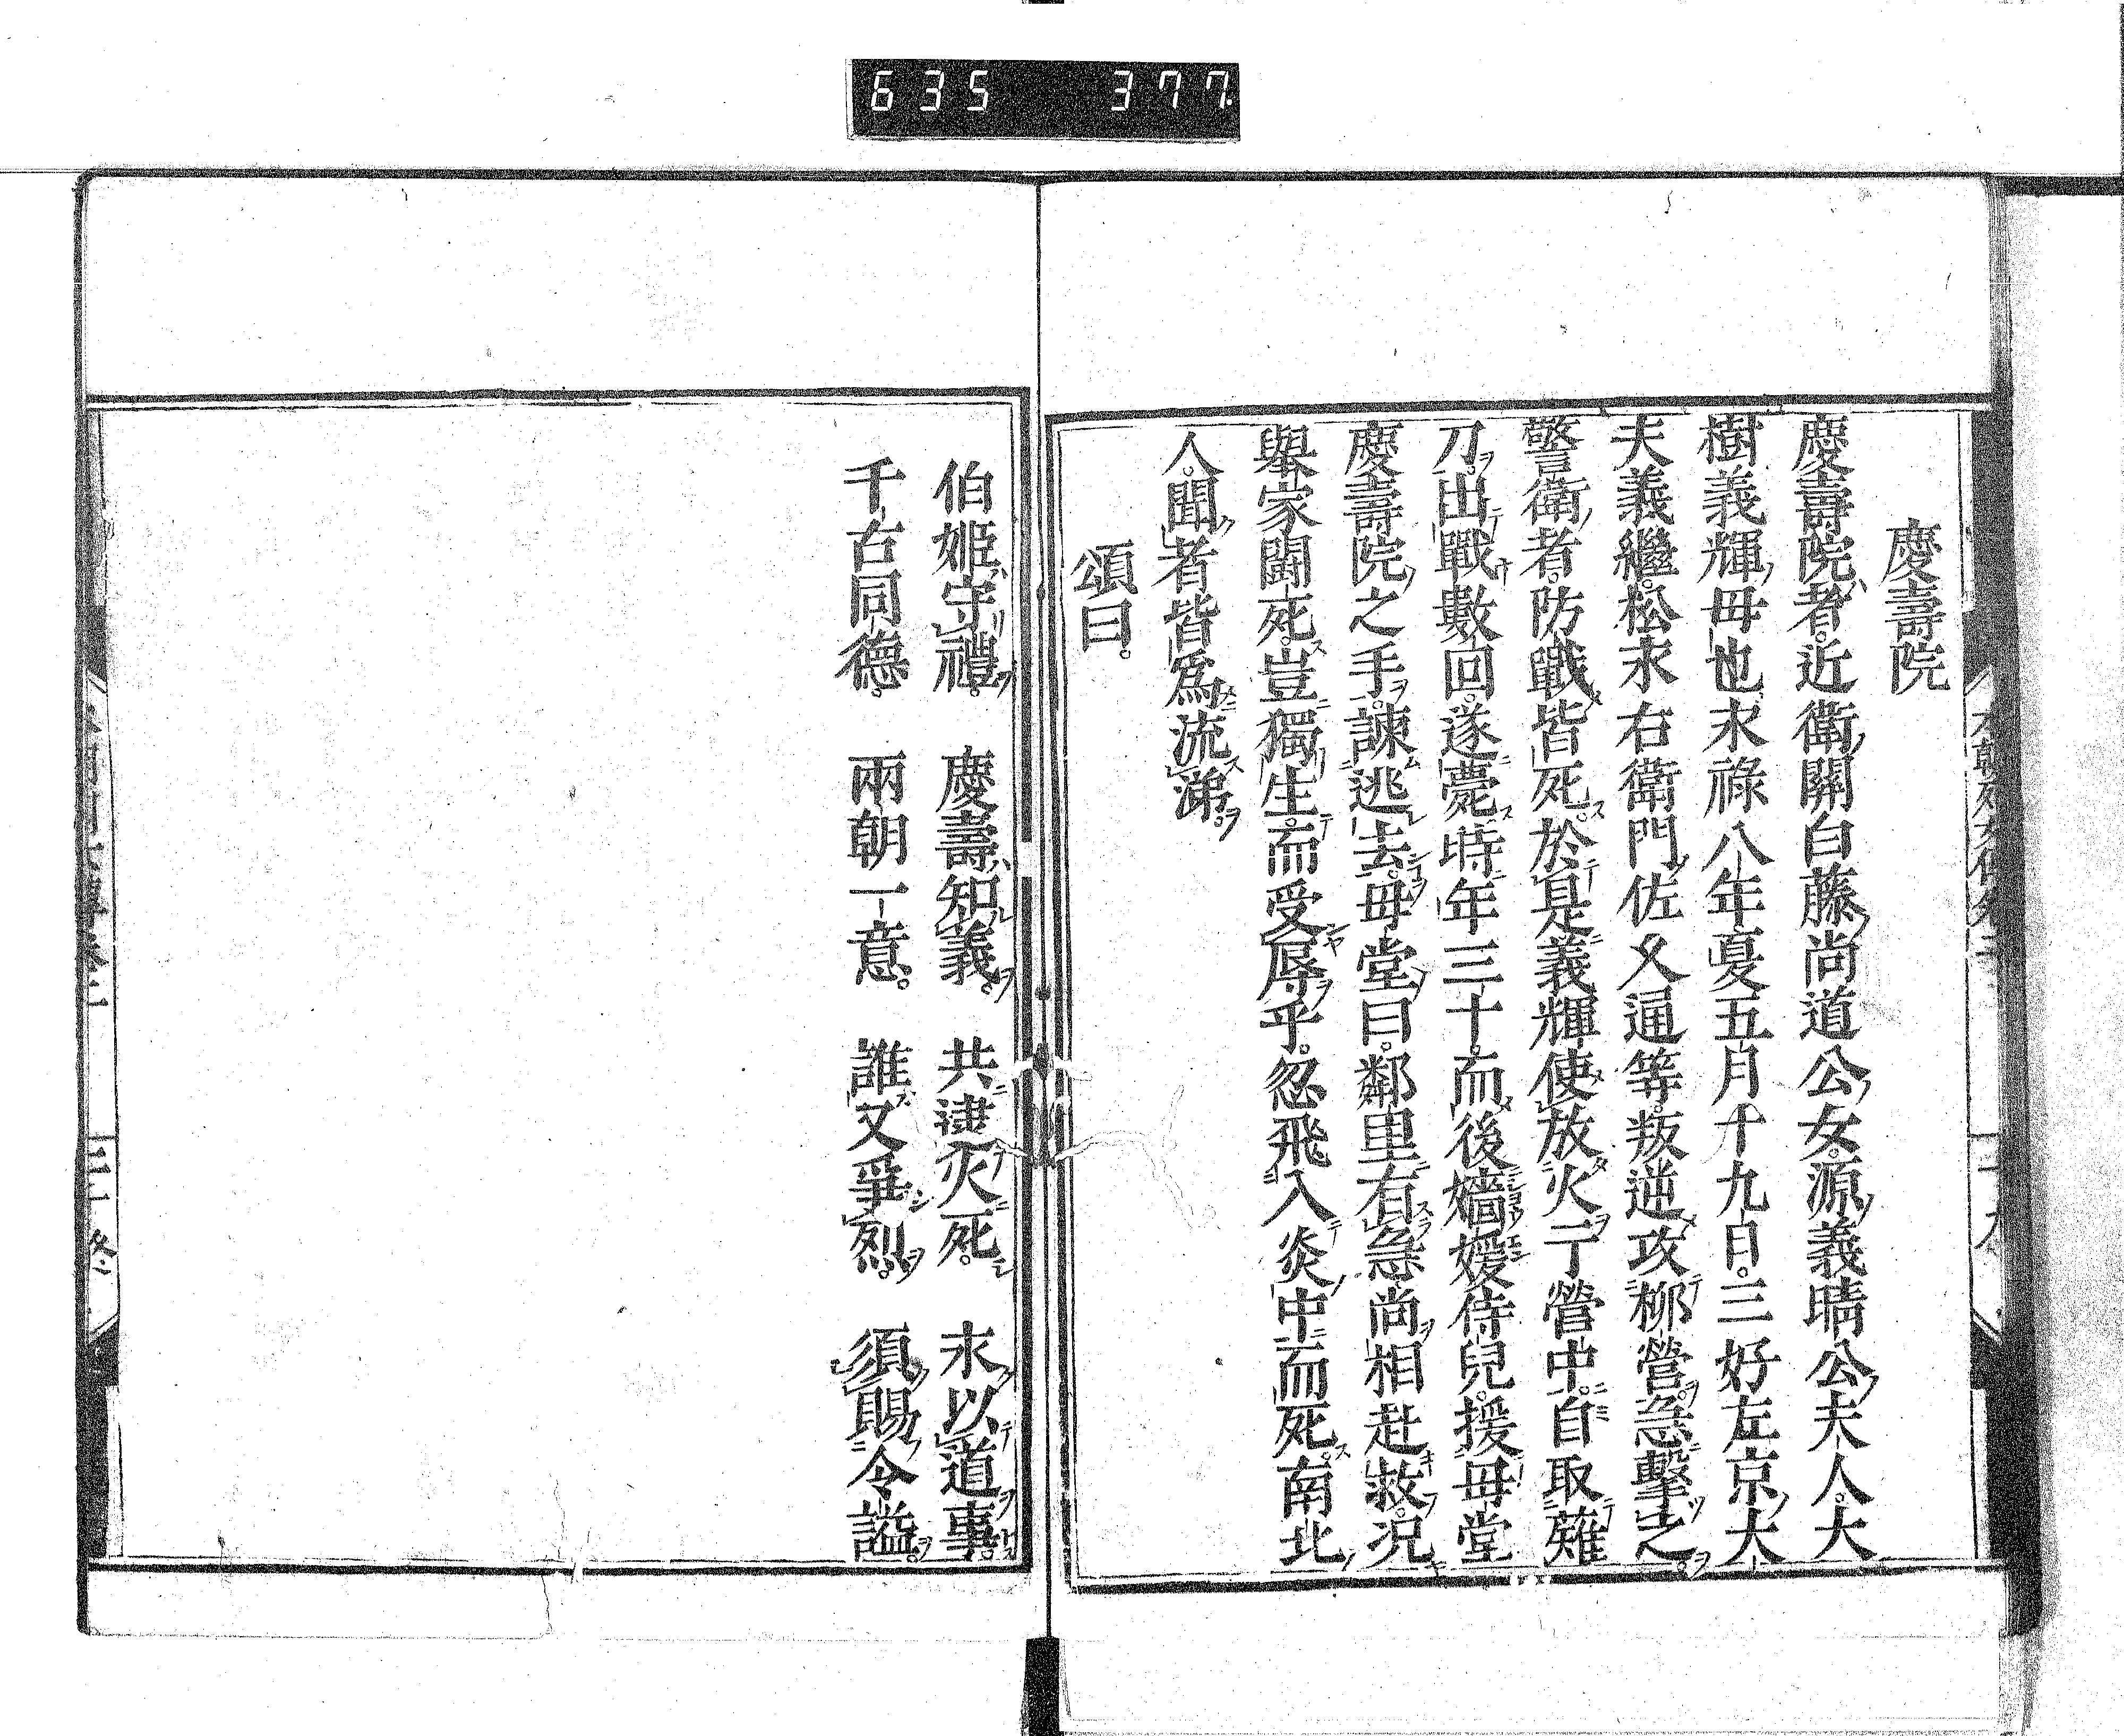 635 377.
慶壽院
慶壽院者。近衛關白藤尚道公女。源義晴公夫人。大
樹義輝母也。永祿八年夏五月十九日。三好左京大
夫義繼。松永右衛門佐久通等。叛逆攻柳營。急擊之。
警衛者。防戰皆死。於是義輝使放火于營中。自取薙
刀。出戰數回。遂薨。時年三十。而後嬙媛侍兒。援母堂
慶壽院之手。諫逃去。母堂曰。鄰里有急。尚相赴救。況
舉家鬪死。豈獨生。而受辱乎。忽飛入炎中而死。南北
人。聞者皆爲流涕。
頌曰。
伯姬守禮。 慶壽知義。 共逮火死。 永以道事。
千古同德。 兩朝一意。 誰又爭烈。 須賜令謚。